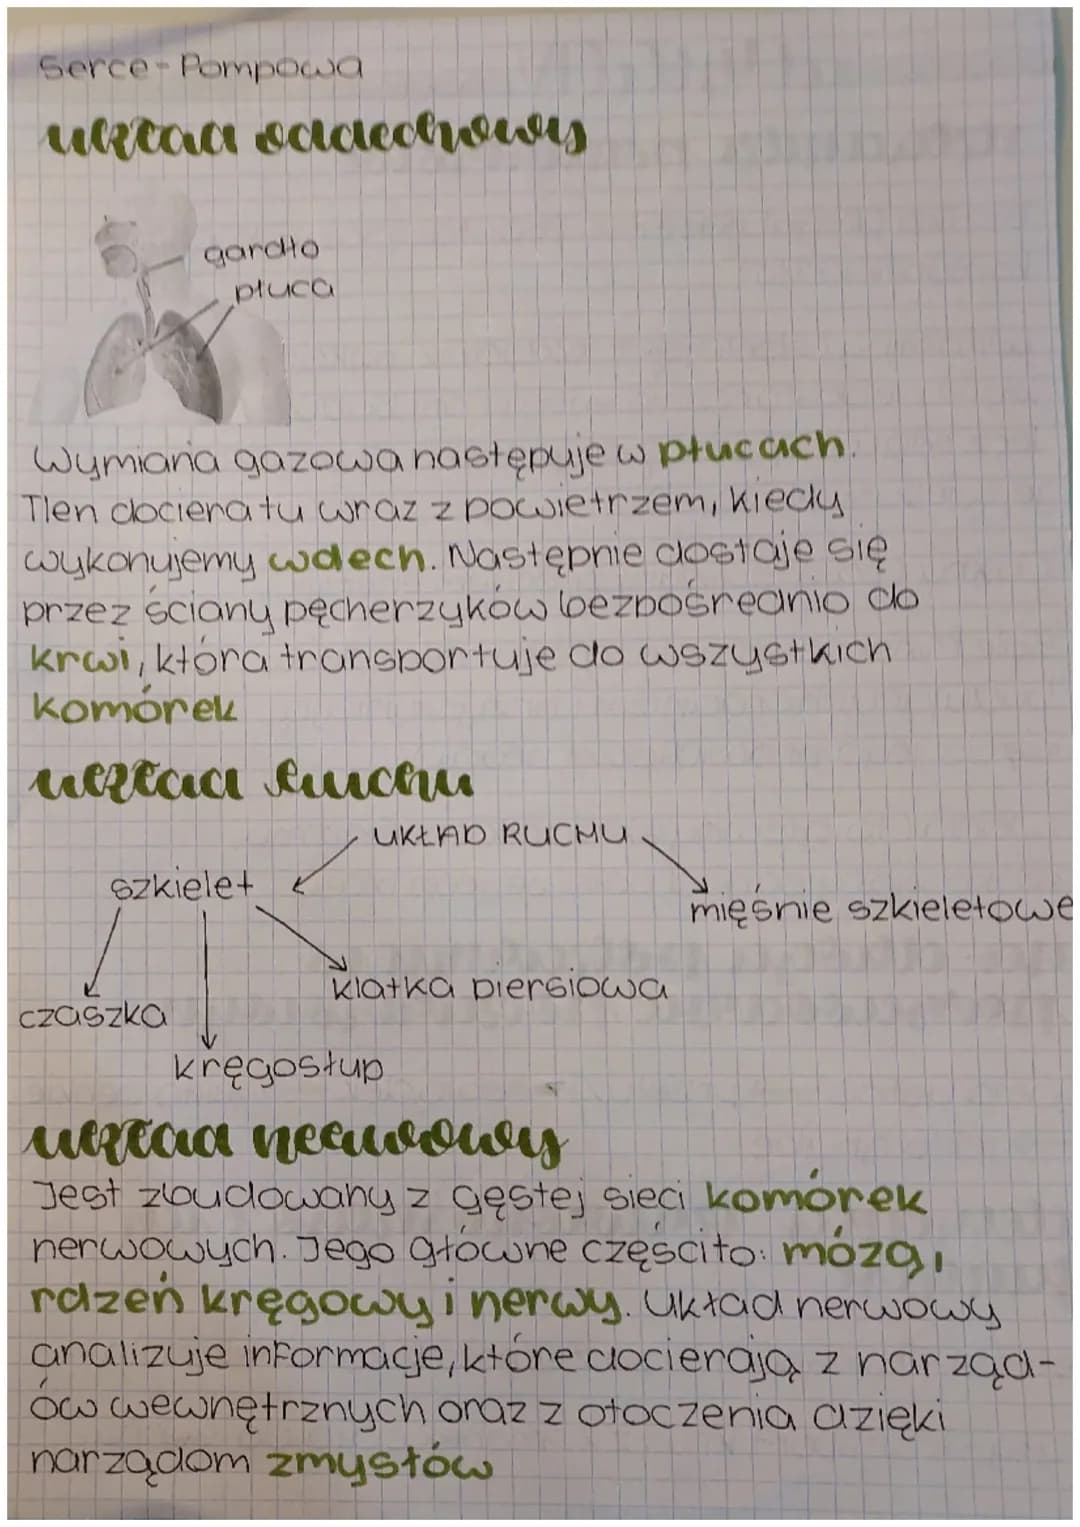 Serce-Pompowa
układ oddechowy
gardło
płuca
Wymiana gazowa następuje w płucach.
Tlen dociera tu wraz z powietrzem, kiedy
wykonujemy wdech. Następnie dostaje się
przez ściany pęcherzyków bezpośrednio do
krwi, która transportuje do wszystkich
komórek
układ ruchu
UKŁAD RUCHU
szkielet
mięśnie szkieletowe
klatka piersiowa
czaszka
kręgosłup
układ nerwowy
Jest zbudowany z gęstej sieci komórek
nerwowych. Jego główne części to: mózg,
rdzeń kręgowy i nerwy. Układ nerwowy
analizuje informacje, które docierają z narząd-
ów wewnętrznych oraz z otoczenia dzięki
narządom zmysłów